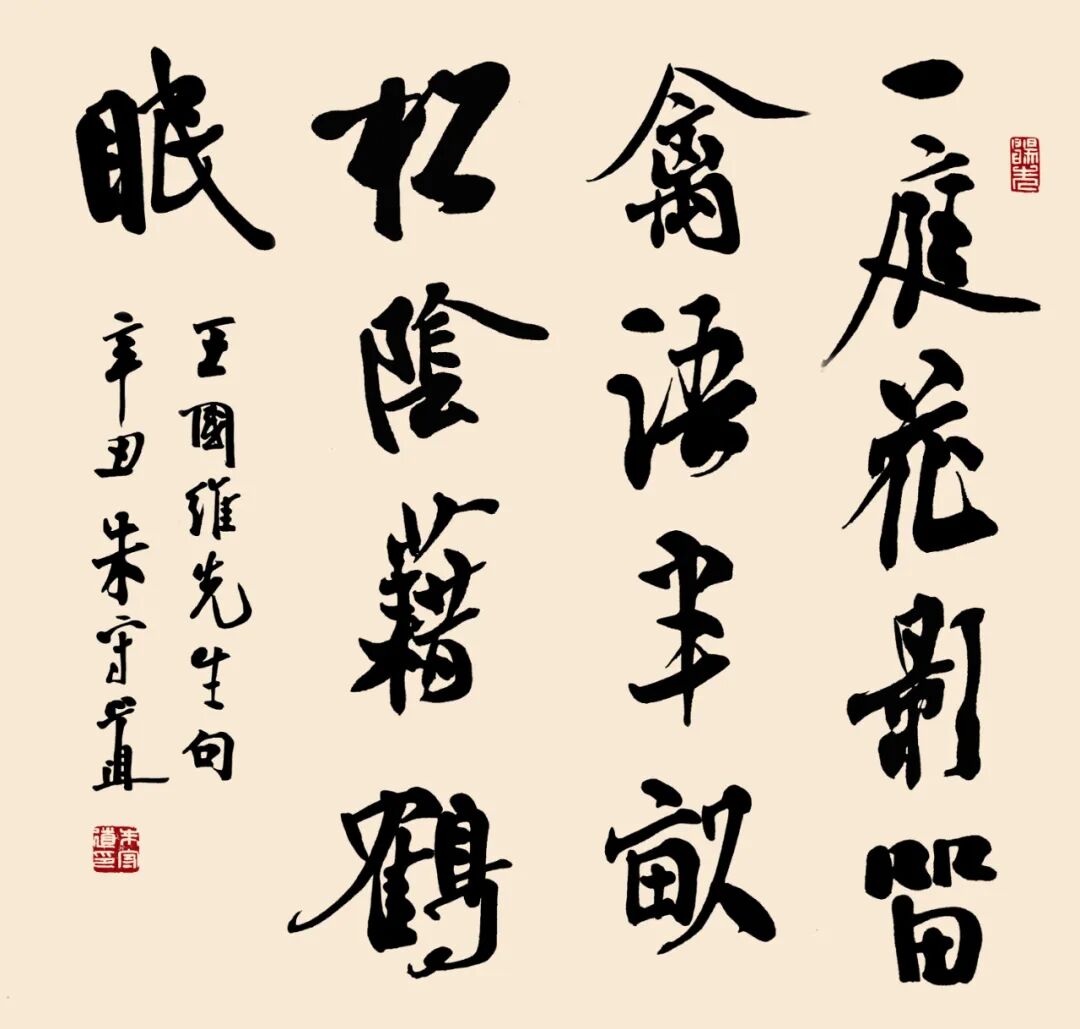 一庭花影留
禽語半畝
松陰藉鶴
眠
王國維先生句
辛丑朱守道
朱守道印